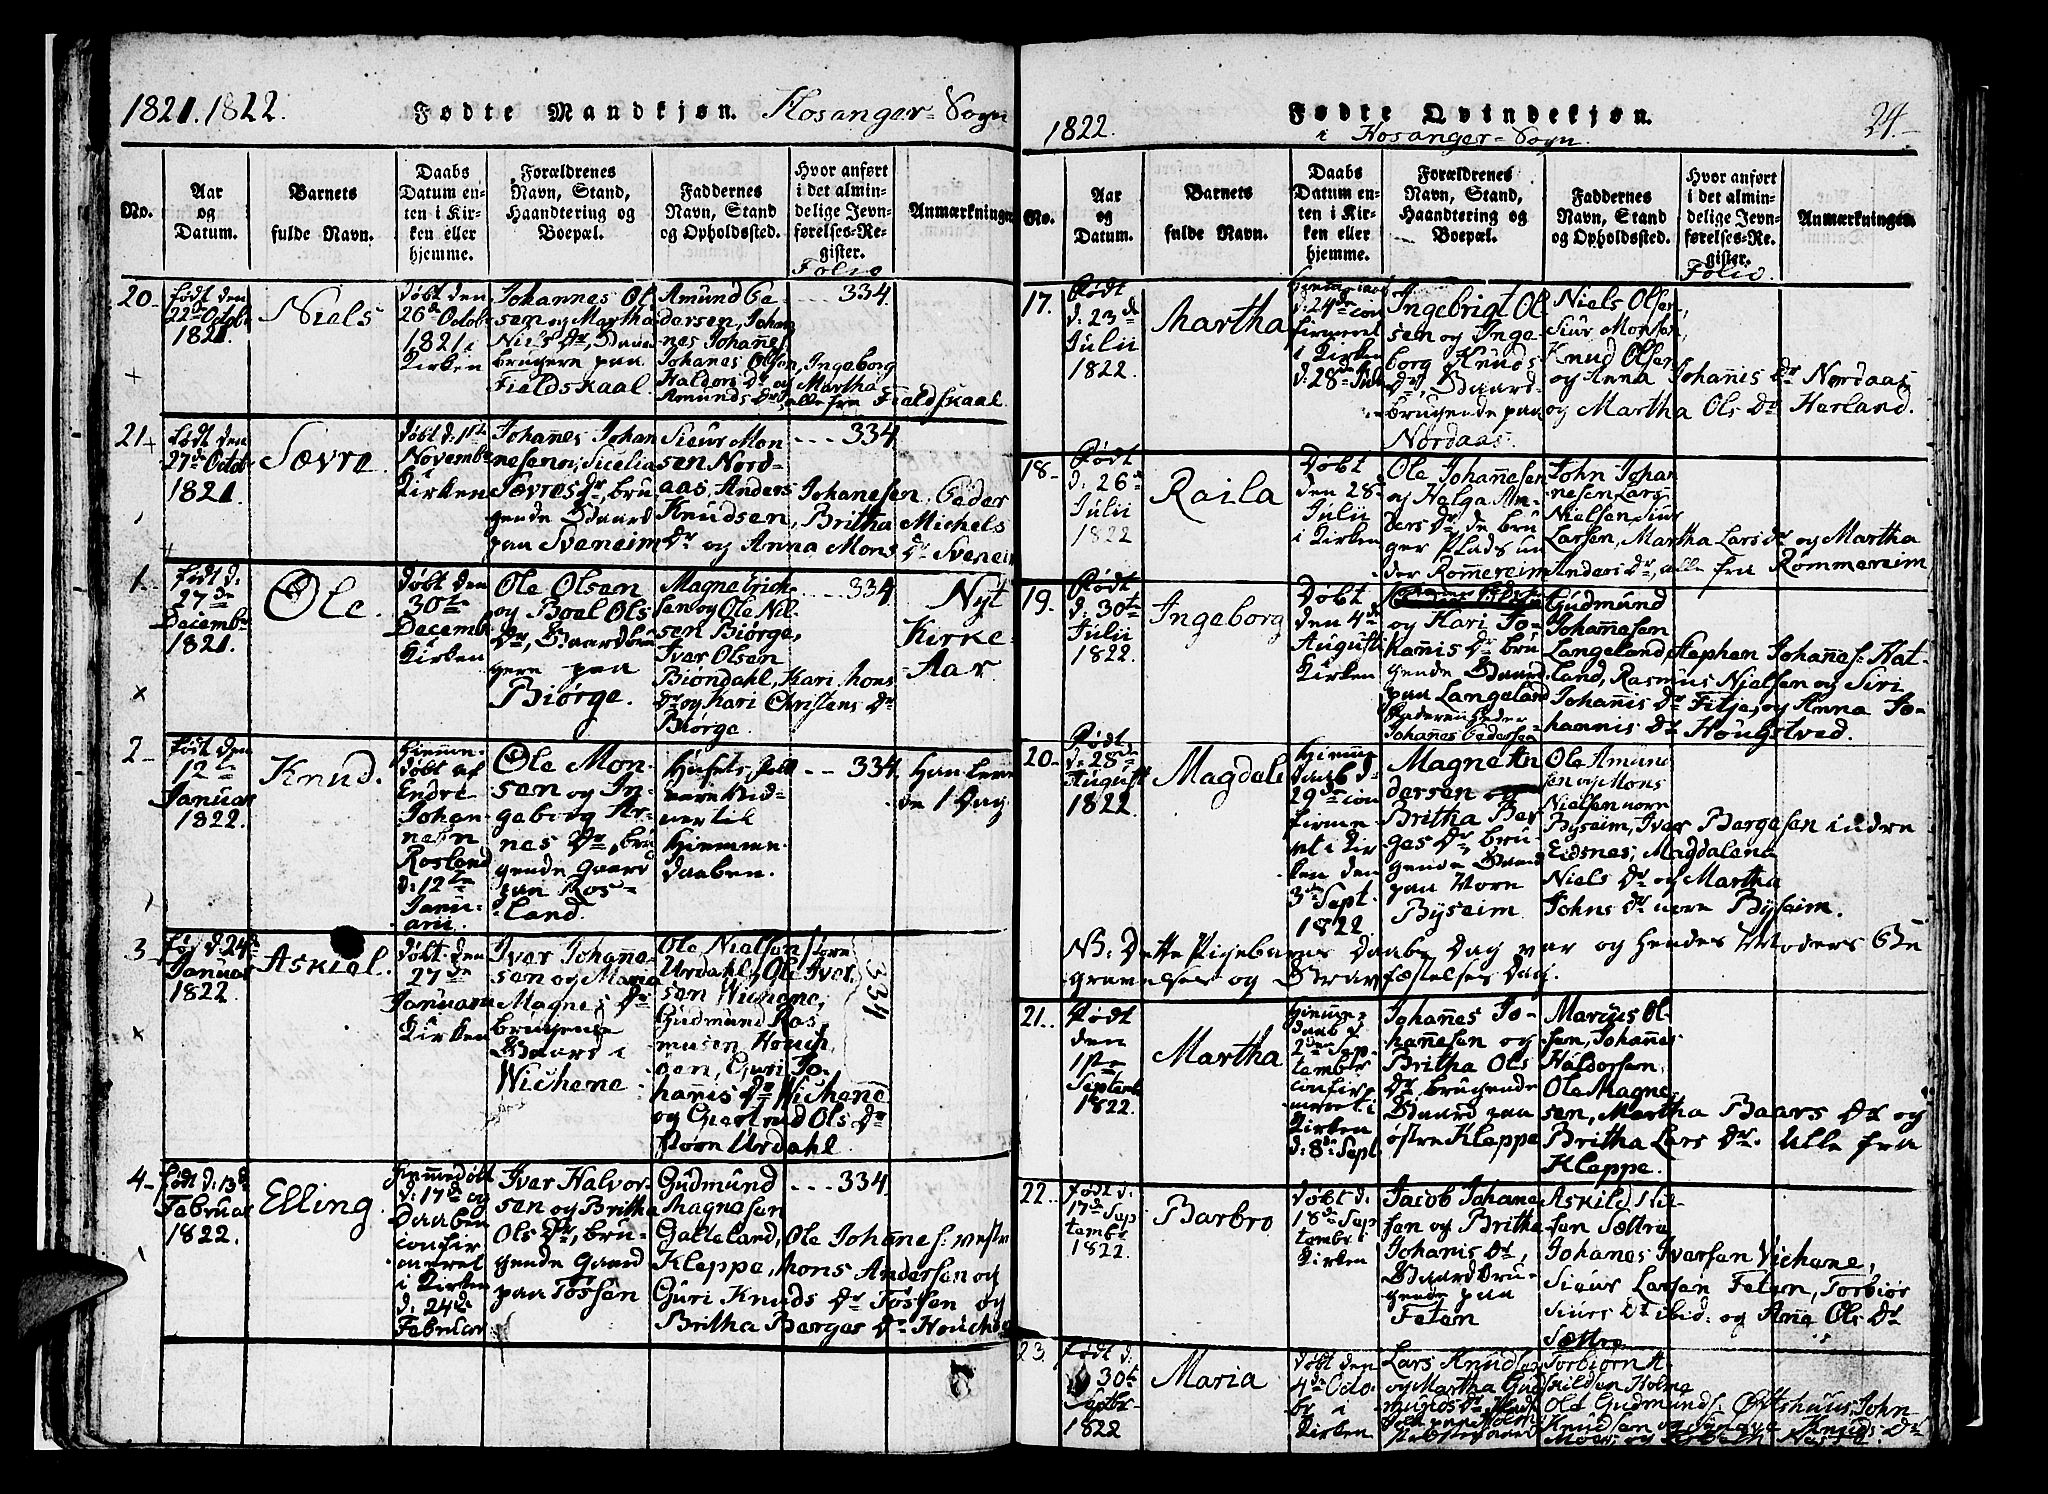 1821. 1822. Fødte Mandkjøn. Hosanger-Sogn
No.
Aar
og
Datum.
Barnets
fulde Navn.
Daabs
Datum en-
ten i Kir-
ken eller
hjemme.
Forældrenes
Navn, Stand,
Haandtering og
Boepæl.
Faddernes
Navn, Stand
og Opholdssted.
Hvor anført
i det almin-
delige Jevn-
førelses-Re-
gister.
Folio
Anmærkninger
20-
født den
22de Octobr
1821.
Niels
døbt den
26de Octobr
1821 i
Kirken
Johannes Ol
sen og Martha
Niels Dr, Gaard
brugere paa
Fieldskaal.
Amund Pe
dersen, Johan
nes Johañes
Johanes Olsen, Ingeborg
Haldors Dr og Martha
Amunds Dr, alle fra Fieldskaal.
334.
21
født den
27de Octobr
1821.
Sævra
døbt d: 1ste
Novembr
Kirken
Johañes Johan
nesen og Sicelia
Sævres Dr, bru
gende Gaard
paa Sveneim
Siur Mon
sen Nord-
aas, Anders Johanesen, Peder
Knudsen, Britha Michels
Dr og Anna Mons Dr Sveneim
334.
1.
født d:
27de
Decembr
1821.
Ole.
døbt den
30te
Decemb
Kirken
Ole Olsen
og Boel Ols
Dr, Gaardbru
gere paa
Biørge.
Magne Erick
sen og Ole Nil
sen Biørge,
Iver Olsen
Biøndahl, Kari Mons
Dr og Kari Christens Dr
Biørge.
334
Nyt
Kirke-
Aar
2-
født den
12te
Januar
1822.
Knud.
Hiemme-
døbt af
Endre
Johan-
nesen
Rosland
d: 12te
Janu-
arii.
Ole Mon-
sen og In-
geborg Ar-
nes Dr, bru
gende Gaard
paa Ros-
land.
Husets folk
vare Vid-
ner til
Hiemme-
daaben.
334.
Han leve
de 1 Dag
3
fød d: 24de
Januar
1822.
Askiel.
døbt den
27de
Januarii
Kirken
Iver Johañe-
sen og Maria
Magnes Dr
brugende
Gaard i
Wichene
Ole Nielsen Store
Urdahl, Ole Iver-
sen Wichene,
Gudmund Ras
musen Houch,
Guri Jo
hañis Dr Wichene
og Giertrud Ols Dr
Støre Urdahl
334
4-
født d: 13de
Februar
1822.
Elling.
hiemmedøbt
d: 17de og
Daaben
confir
meret
i Kirken
d: 24de
Februar
Iver Halvor-
sen og Britha
Ols Dr, bru-
gende Gaard
paa Tøssen
Gudmund
Magnesen
Galteland, Ole Johañes: vestre
Kleppe, Mons Andersen og
Guri Knuds Dr Tøssen og
Britha Børges Dr Houchen
334.
1822. Fødte Qvindekjøn. 24.
i Hosanger-Sogn.
No.
Aar
og
Datum.
Barnets
fulde Navn.
Daabs
Datum en-
ten i Kir-
ken eller
hjemme.
Forældrenes
Navn, Stand,
Haandtering og
Boepæl.
Faddernes
Navn, Stand
og Opholdssted.
Hvor anført
i det almin-
delige Jevn-
førelses-Re-
gister.
Folio.
Anmærkninger.
17.
Født
d: 23de
Julii
1822.
Martha
d: 24de con
firmeret
i Kirken
d: 28de Julii
Ingebrigt Ol
sen og Inge
borg Knuds
Dr, Gaard-
brugende paa
Nordaas.
Niels Olsen,
Siur Monsen,
Knud Olsen
og Anna Johañis Dr Nordaas
og Martha Ols Dr Herland.
18-
Født
d: 26de
Julii
1822
Raila
Døbt
den 28de
Julii
i Kirken
Ole Johañesen
og Helga An-
ders Dr, de bru
ger Plads un
der Rømmereim
John Johan
nesen Lars
Nielsen Siur
Larsen, Martha Lars Dr og Martha
Anders Dr, alle fra Rømmereim
19.
Født
d: 30te
Julii
1822.
Ingeborg
Døbt
den 4de
Augusti
Kirken
og Kari Jo-
hañis Dr bru
gende Gaard
paa Langeland
Faderen heder
Johañes Pedersen
Gudmund
Johañesen
Langeland, Stephen Johañes: Hat-
land, Rasmus Nielsen og Siri
Johañis Dr Fitje, og Anna Jo-
hannis Dr Hougstved.
20-
Født
d: 28de
August
1822.
Magdele
Hiemme
daab d:
29de con
firme
ret i Kir
ken den
3de Sept.
1822
Magne An
dersen og
Britha Bør
ges Dr, bru
gende Gaard
paa Norre
Byseim
Ole Amund
sen og Mons
Nielsen norre
Byseim, Iver Børgesen indre
Eidsnes, Magdalena
Niels Dr og Martha
Johns Dr norre Byseim.
NB: Dette Pigebarns Daabs Dag var og hendes Moders Be
gravelses og Gravfæstelses Dag.
21.
Født
den
1ste
Septembr
1822.
Martha
Hiemme-
daab d:
2den Sep-
tembr
confir
meret i
Kirken
d: 8de Sept
Johañes Jo-
hañesen og
Britha Ols
Dr, brugende
Gaard paa
østre Kleppe
Marius Ol-
sen, Johañes
Haldorsen,
Ole Magne
sen, Martha Baars Dr og
Britha Lars Dr. Alle fra
Kleppe.
22.
født d:
17de Sep
tembr
1822.
Barbro
døbt d:
18de Sep
tembr i
Kirken
Jacob Johane
sen og Britha
Johanis Dr,
Gaardbru-
gende paa
Feten
Askild Nil-
sen Sættre
Johanes Iversen Vichene,
Sieur Larsen Feten, Torbiør
Siurs Dr ibid: og Anna Ols Dr
Sættre
23.
født d:
30te
Septbr
1822
Maria
døbt den
4de Octo-
br i
Kirken
Lars Knudsen
og Martha Gud
munds Dr, Plads
folk paa Holme
Torbiørn A-
skildsen Holme
Ole Gudmunds: Østshuus, John
Knudsen og Synneva Knuds Dr